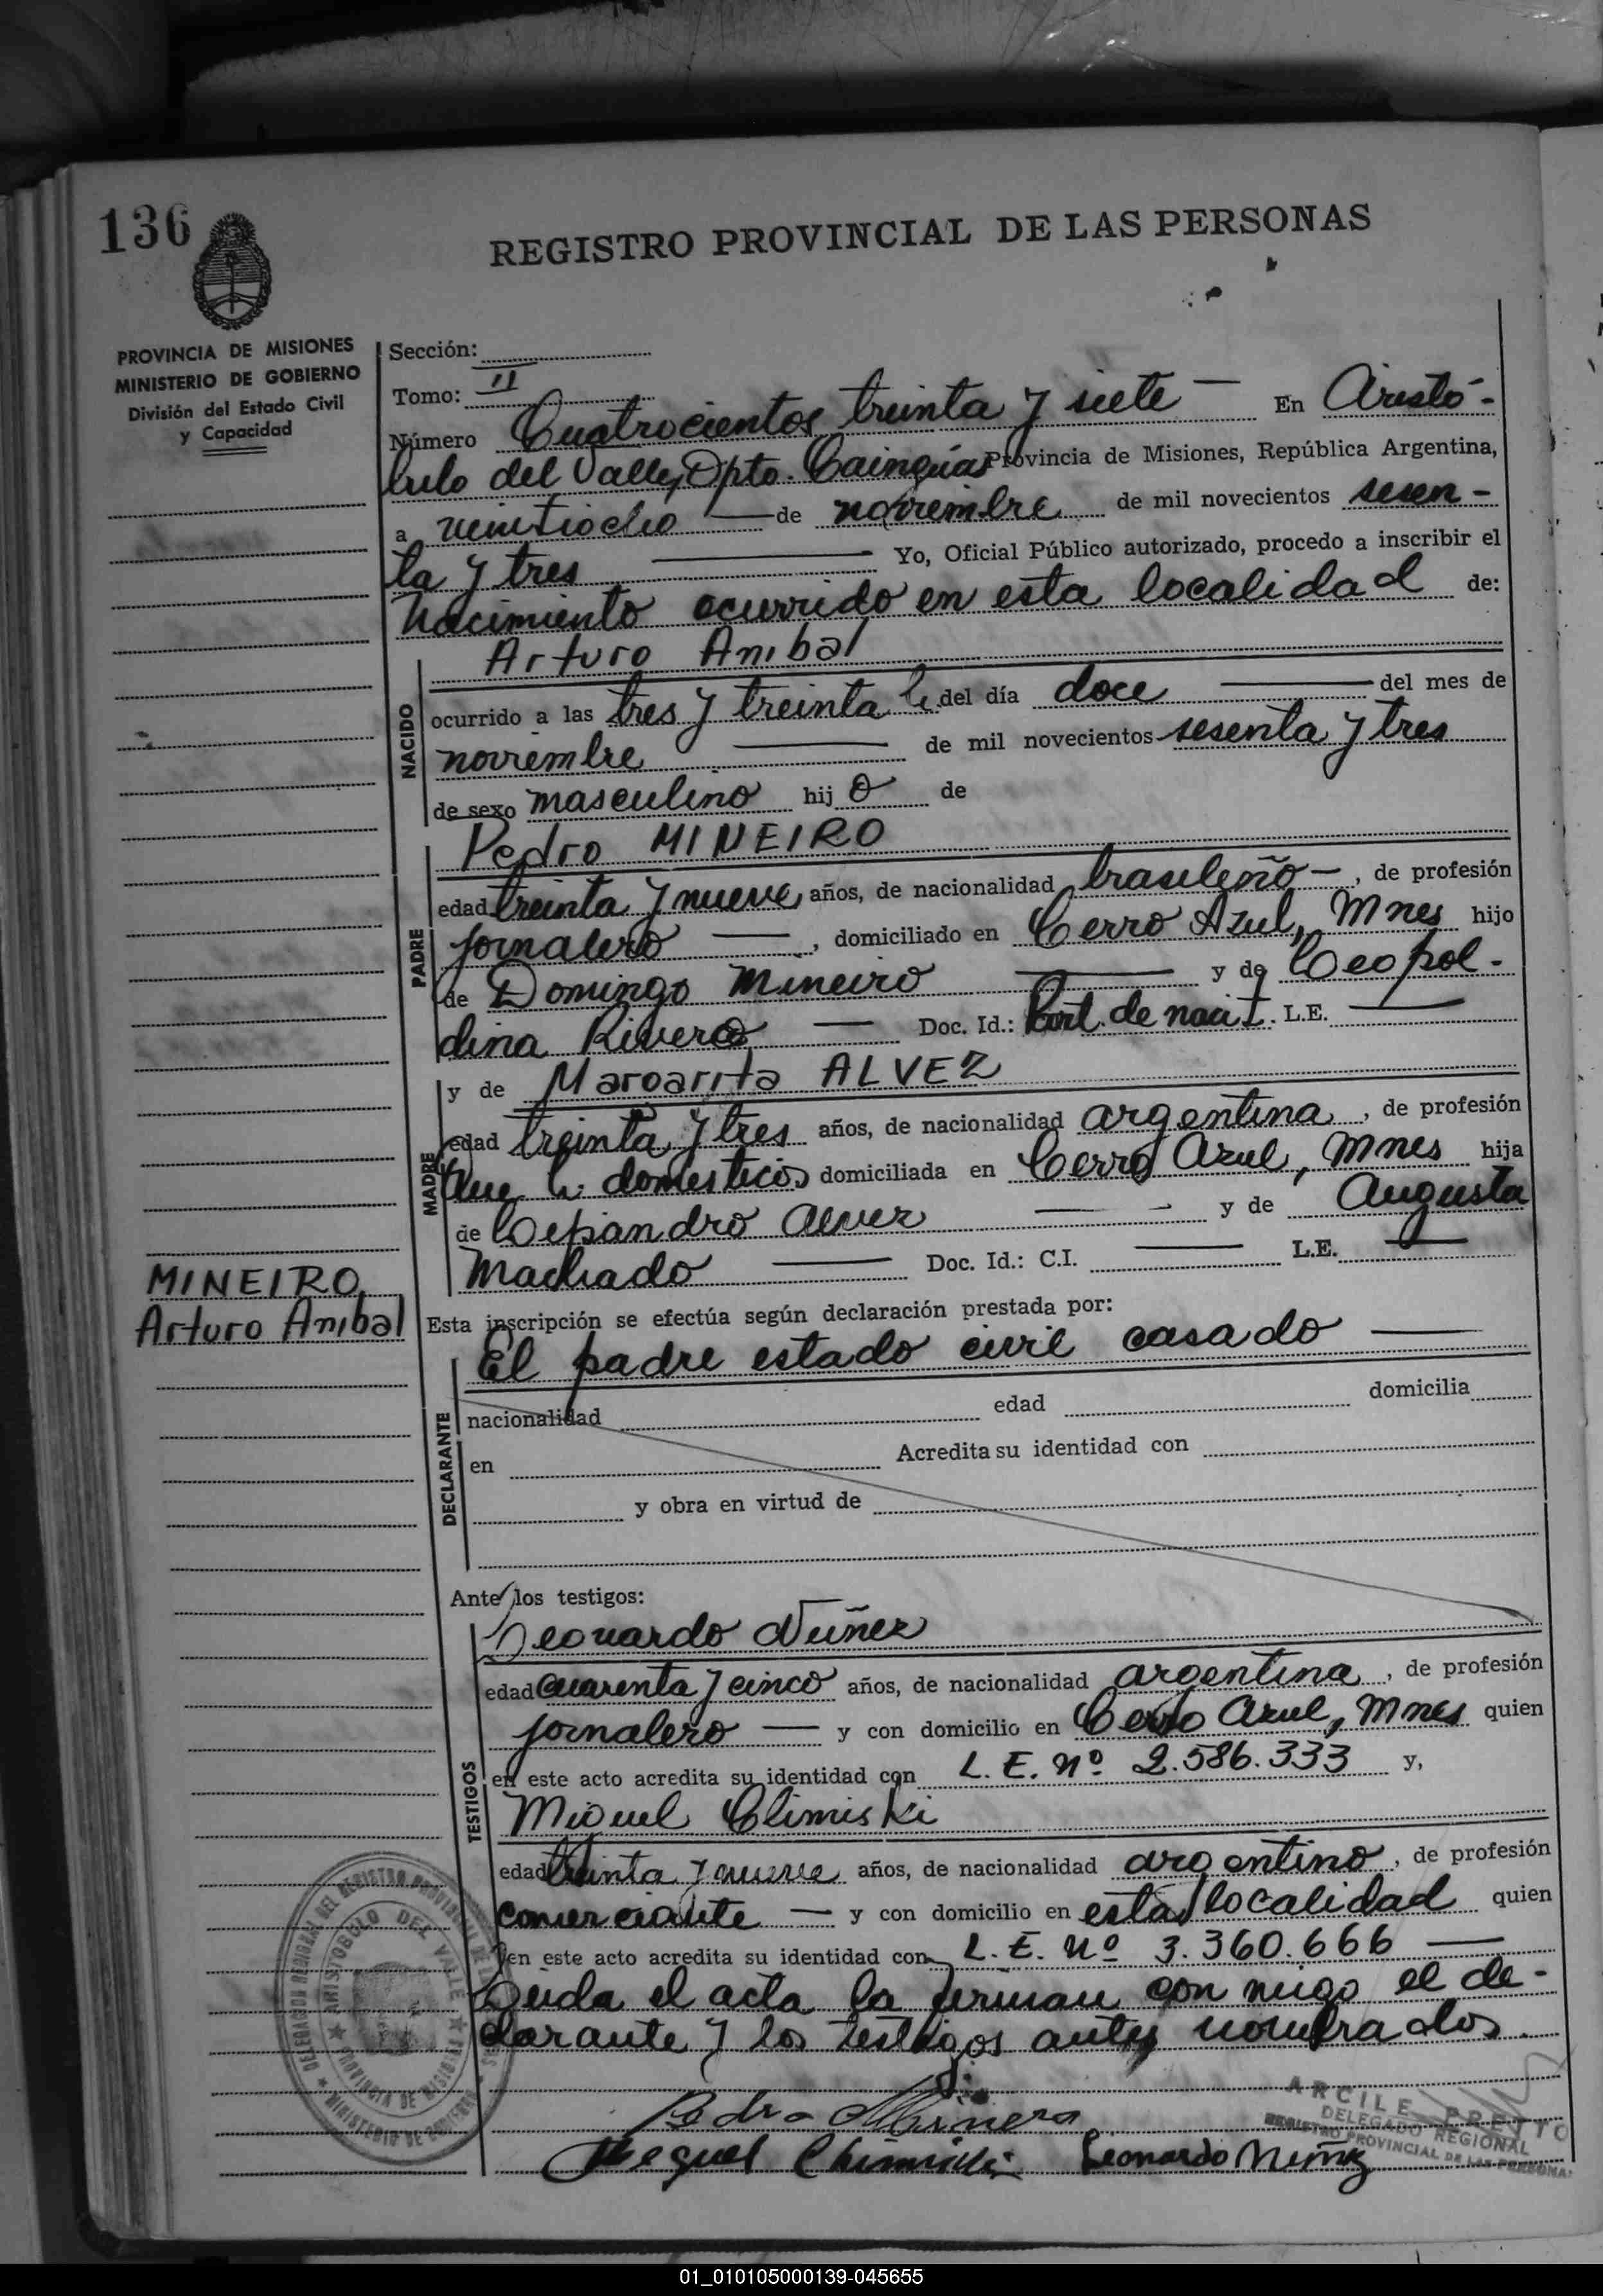 136
REGISTRO PROVINCIAL DE LAS PERSONAS
PROVINCIA DE MISIONES
MINISTERIO DE GOBIERNO
División del Estado Civil
y Capacidad
Sección:
Tomo: II
Número Cuatrocientos treinta y siete — En Aristó-
bulo del Valle, Dpto. Cainguás Provincia de Misiones, República Argentina,
a veintiocho — de noviembre de mil novecientos sesen-
ta y tres — Yo, Oficial Público autorizado, procedo a inscribir el
Nacimiento ocurrido en esta localidad de:
Arturo Anibal
NACIDO
ocurrido a las tres y treinta h. del día doce — del mes de
noviembre — de mil novecientos sesenta y tres
de sexo masculino hij o de
Pedro MINEIRO
PADRE
edad treinta y nueve años, de nacionalidad brasileño —, de profesión
jornalero —, domiciliado en Cerro Azul, Mnes hijo
de Domingo Mineiro — y de Leopol-
dina Rivero — Doc. Id.: Part. de nacit. L.E. —
y de Margarita ALVEZ
MADRE
edad treinta y tres años, de nacionalidad argentina, de profesión
domesticos domiciliada en Cerro Azul, Mnes hija
de Lepandro Alvez — y de Augusta
Machado — Doc. Id.: C.I. — L.E. —
MINEIRO,
Arturo Anibal
Esta inscripción se efectúa según declaración prestada por:
El padre estado civil casado —
DECLARANTE
nacionalidad edad domicilia
en Acredita su identidad con
y obra en virtud de
Ante los testigos:
Leonardo Nuñez
TESTIGOS
edad cuarenta y cinco años, de nacionalidad argentina, de profesión
jornalero — y con domicilio en Cerro Azul, Mnes quien
en este acto acredita su identidad con L.E. Nº 2.586.333 y,
Miguel Climiski
edad treinta y nueve años, de nacionalidad argentino, de profesión
comerciante — y con domicilio en esta localidad quien
en este acto acredita su identidad con L.E. Nº 3.360.666 —
Leida el acta la firman con migo el de-
clarante y los testigos antes nombrados.
DELEGACION REGIONAL DEL REGISTRO PROVINCIAL DE LAS
ARISTOBULO DEL VALLE
PROVINCIA DE MISIONES
MINISTERIO DE GOBIERNO
Pedro Minero
ARCILE PRETTO
DELEGADO REGIONAL
REGISTRO PROVINCIAL DE LAS PERSONAS
Miguel Leonardo Nuñez
01_010105000139-045655